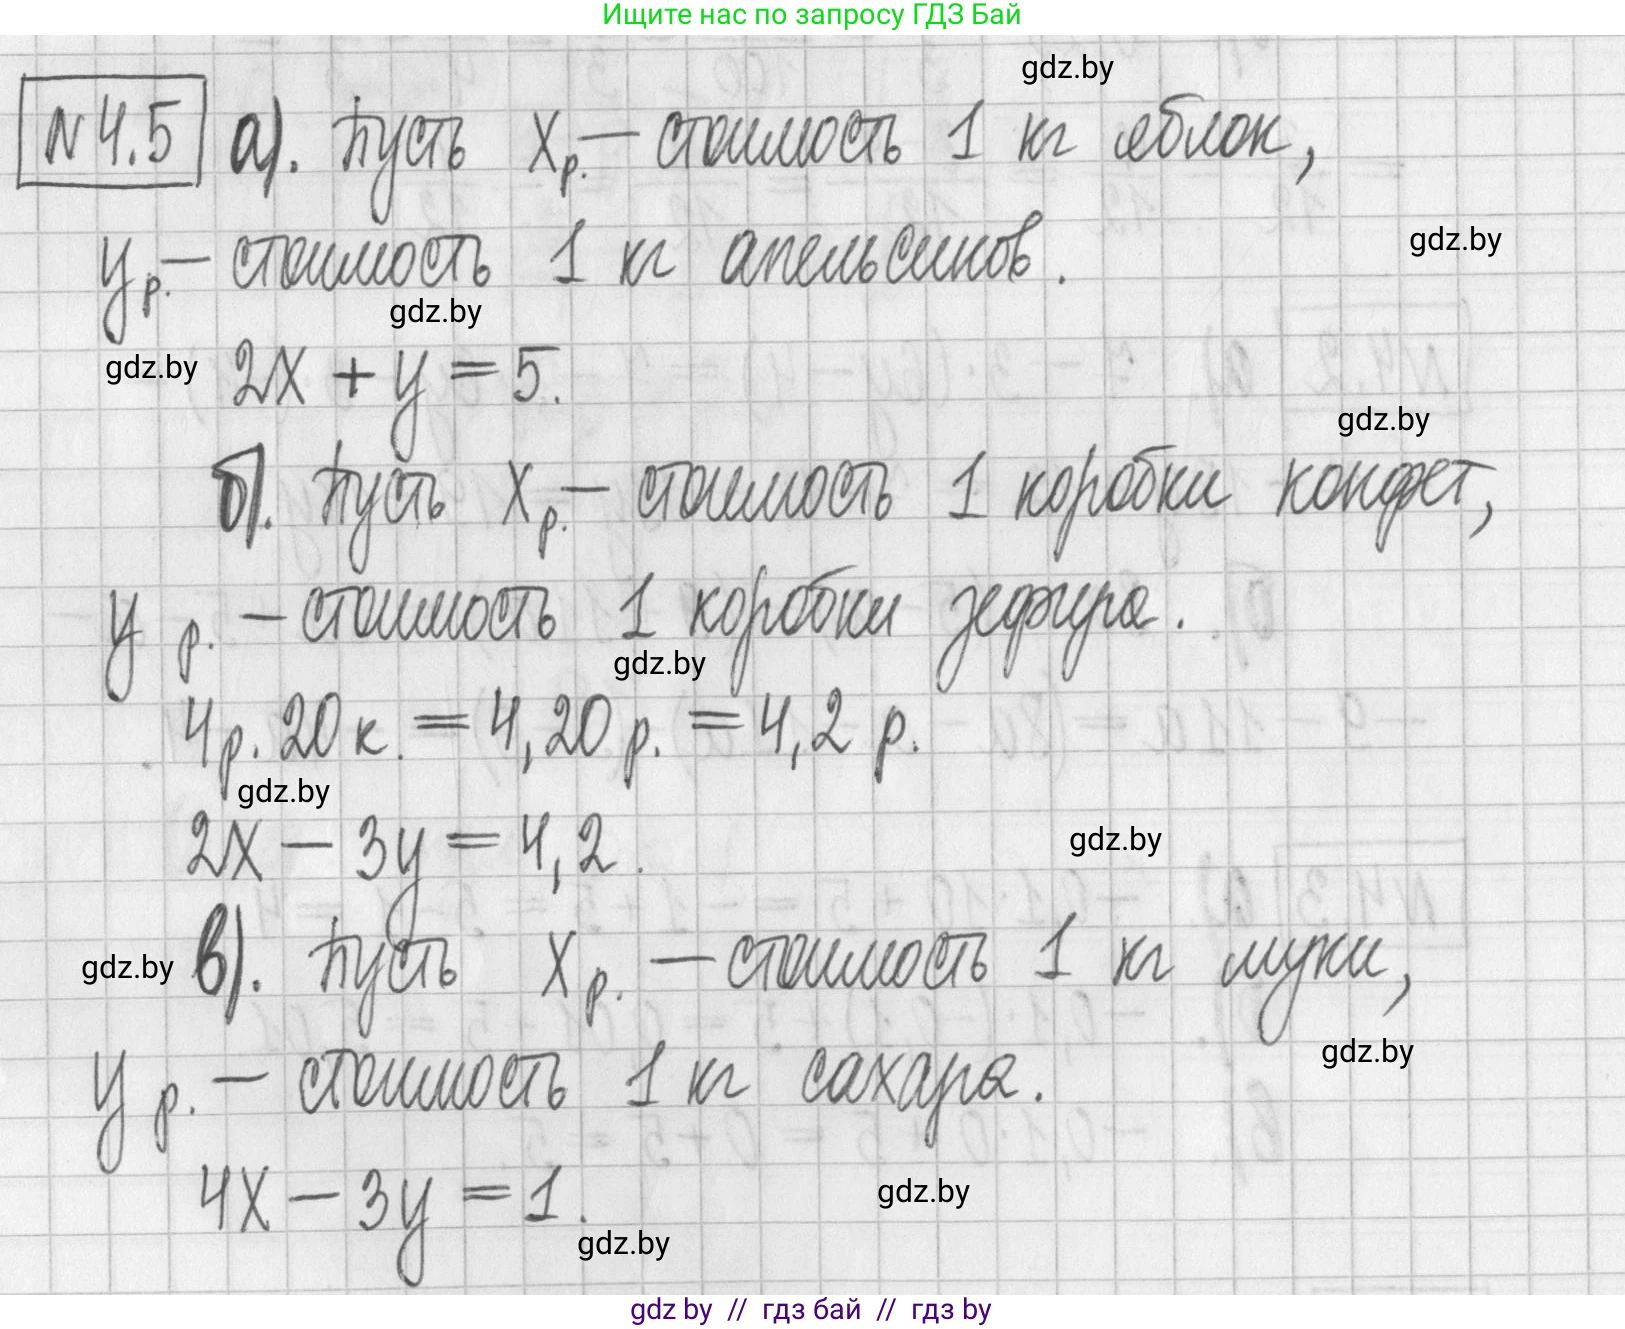 Ищите нас по запросу ГДЗ Бай
gdz.by
N 4.5 а). Пусть х р. — стоимость 1 кг яблок,
gdz.by
у р. — стоимость 1 кг апельсинов.
gdz.by
gdz.by
2х + у = 5.
gdz.by
б). Пусть х р. — стоимость 1 коробки конфет,
у р. — стоимость 1 коробки зефира.
gdz.by
4р. 20 к. = 4,20 р. = 4,2 р.
gdz.by
2х — 3у = 4,2.
gdz.by
в). Пусть х р. — стоимость 1 кг муки,
gdz.by
у р. — стоимость 1 кг сахара.
gdz.by
4х — 3у = 1.
gdz.by
gdz.by
gdz by // гдз бай // гдз by